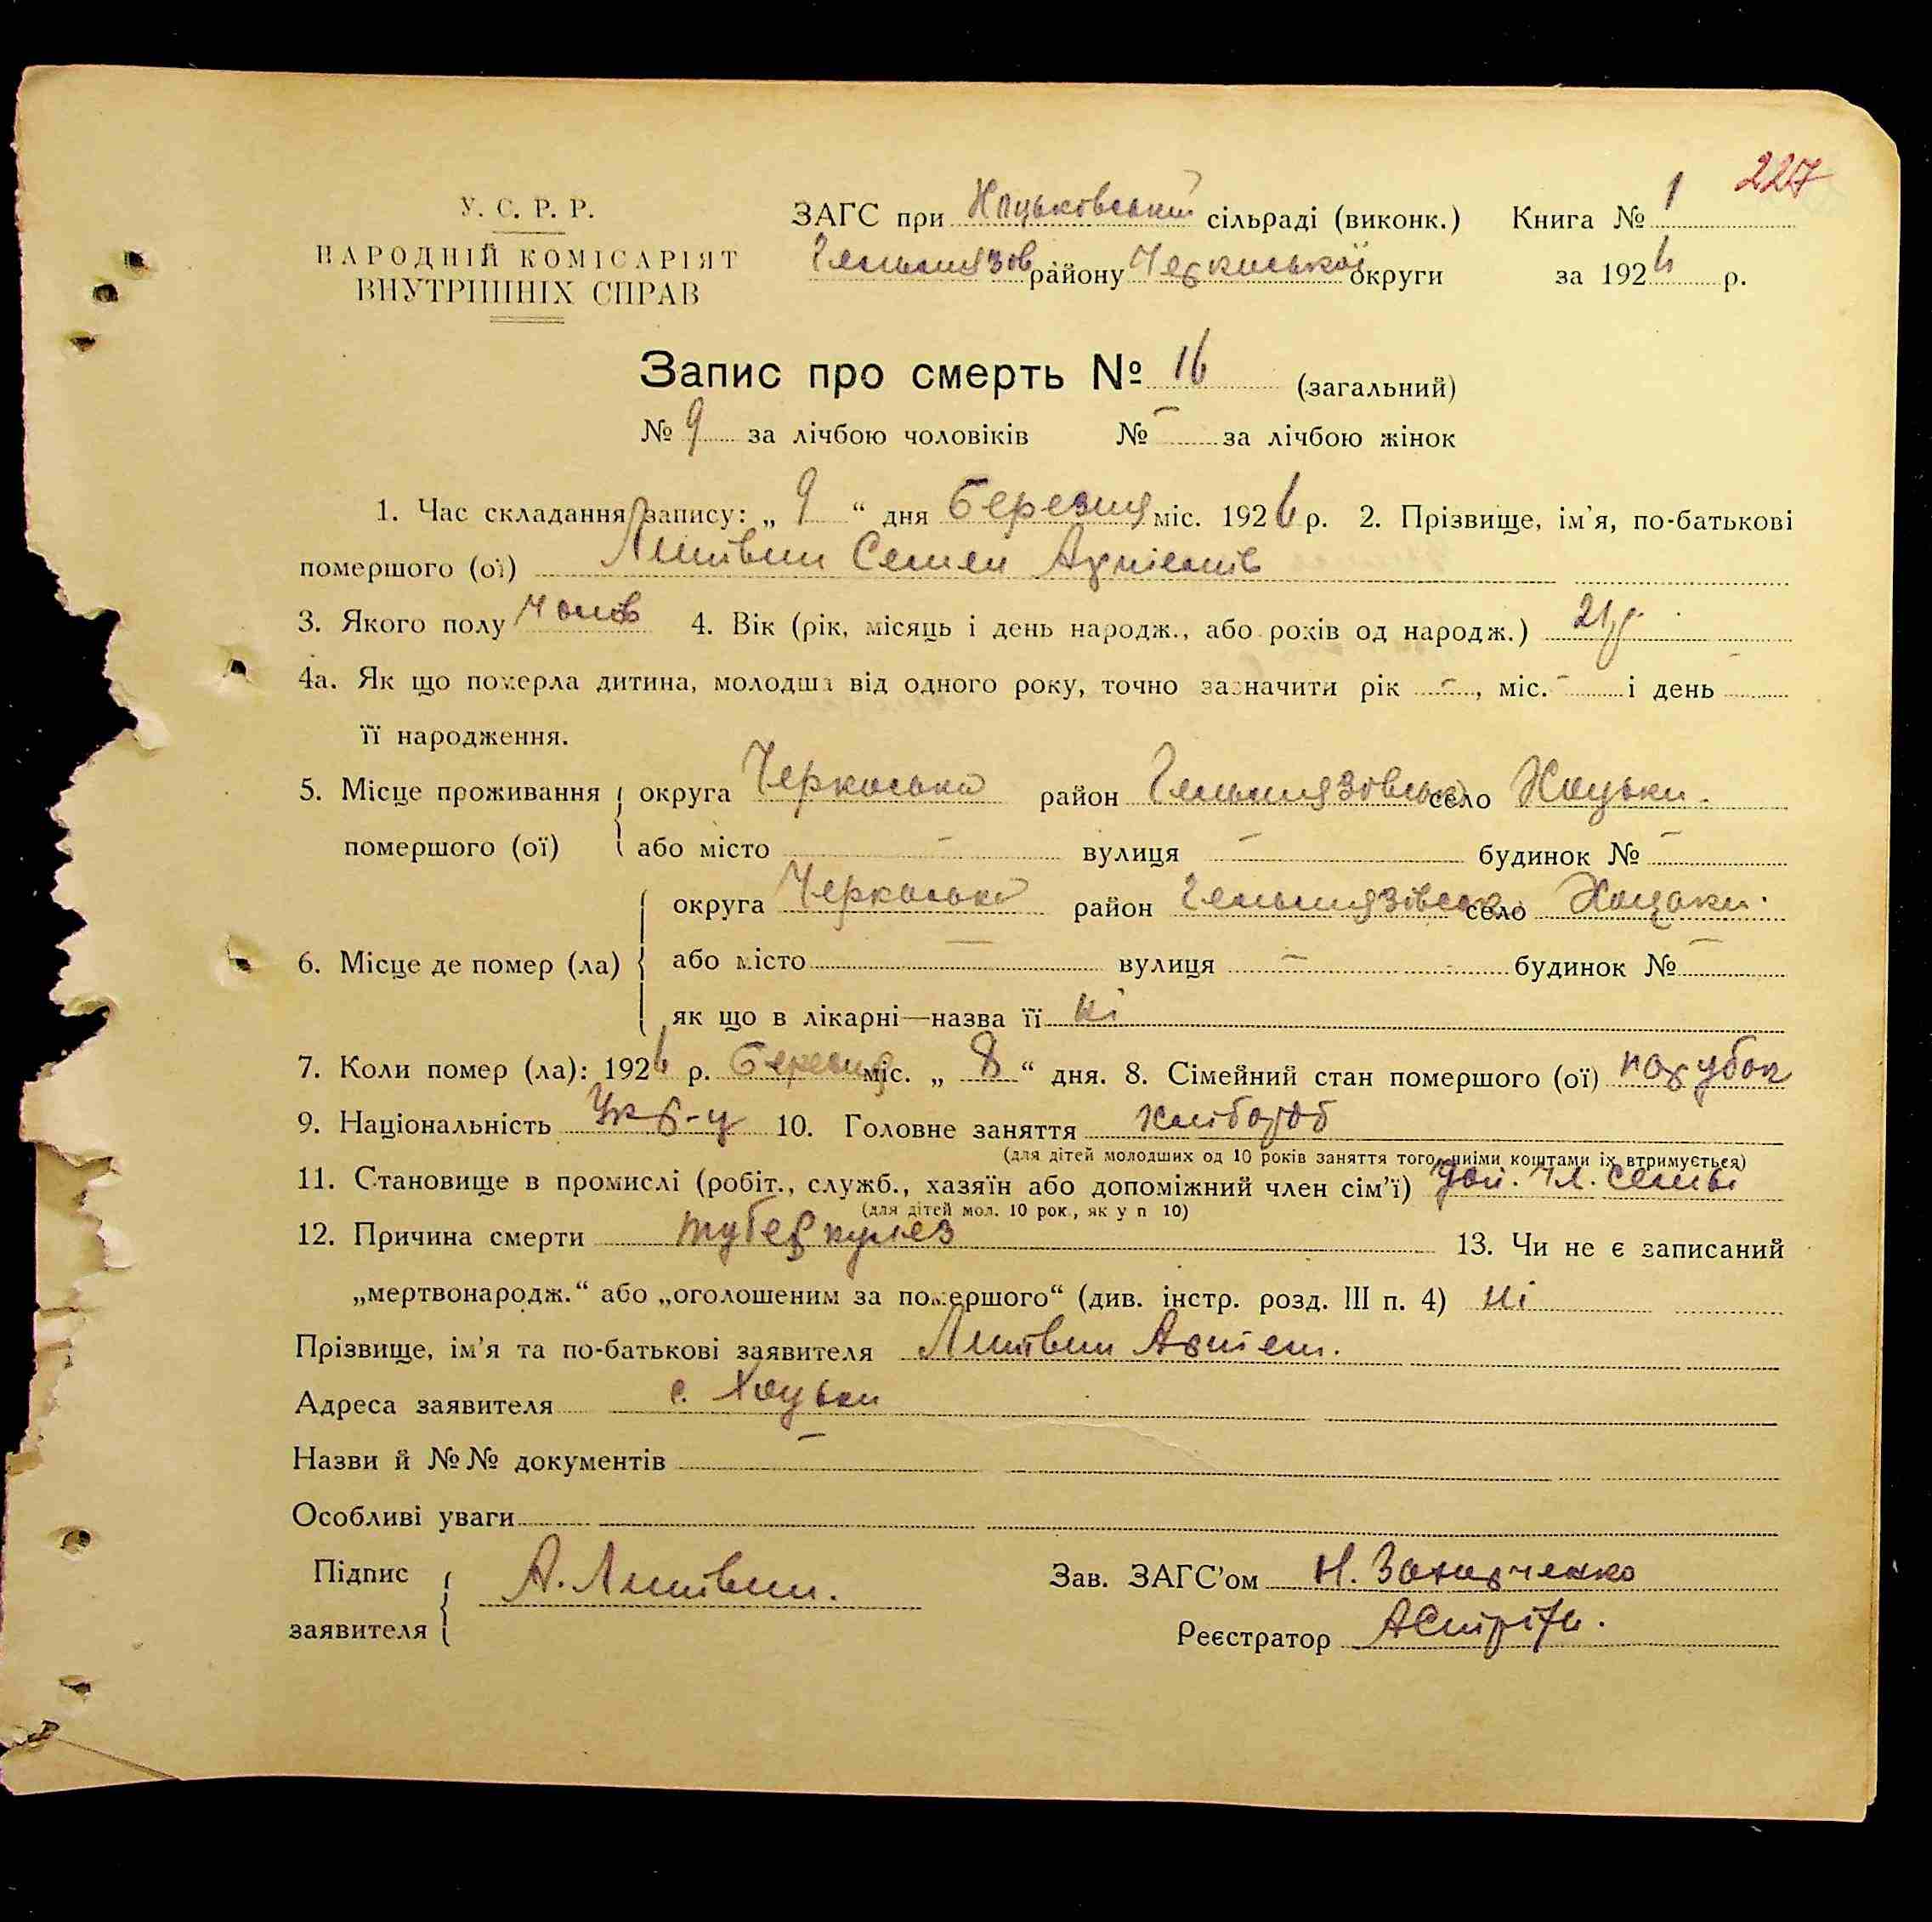 227
У. С. Р. Р.
НАРОДНІЙ КОМІСАРІЯТ
ВНУТРІШНІХ СПРАВ
ЗАГС при Хоцьковській сільраді (виконк.) Книга № 1
Гельмязов району Черкаської округи за 1926 р.
Запис про смерть № 16 (загальний)
№ 9 за лічбою чоловіків № - за лічбою жінок
1. Час складання запису: „ 9 “ дня березня міс. 1926 р. 2. Прізвище, ім'я, по-батькові
помершого (ої) Литвин Семен
3. Якого полу чолов 4. Вік (рік, місяць і день народж., або років од народж.) 21 р.
4а. Як що померла дитина, молодша від одного року, точно зазначити рік -, міс. - і день -
її народження.
5. Місце проживання округа Черкаська район Гельмязовськ село Хоцьки.
помершого (ої) або місто - вулиця - будинок № -
округа Черкаська район Гельмязівськ село Хоцьки.
6. Місце де помер (ла) або місто - вулиця - будинок № -
як що в лікарні—назва її ні
7. Коли помер (ла): 1926 р. березня міс. „ 8 “ дня. 8. Сімейний стан помершого (ої) парубок
9. Національність Укр-ц 10. Головне заняття хлібороб
(для дітей молодших од 10 років заняття того, чиїми коштами їх втримується)
11. Становище в промислі (робіт., служб., хазяїн або допоміжний член сім'ї) чл. семьі
(для дітей мол. 10 рок., як у п 10)
12. Причина смерти туберкульоз 13. Чи не є записаний
„мертвонародж.“ або „оголошеним за помершого“ (див. інстр. розд. III п. 4) ні
Прізвище, ім'я та по-батькові заявителя Литвин
Адреса заявителя с. Хоцьки
Назви й №№ документів -
Особливі уваги
Підпис
заявителя А. Литвин.
Зав. ЗАГС'ом
Реєстратор